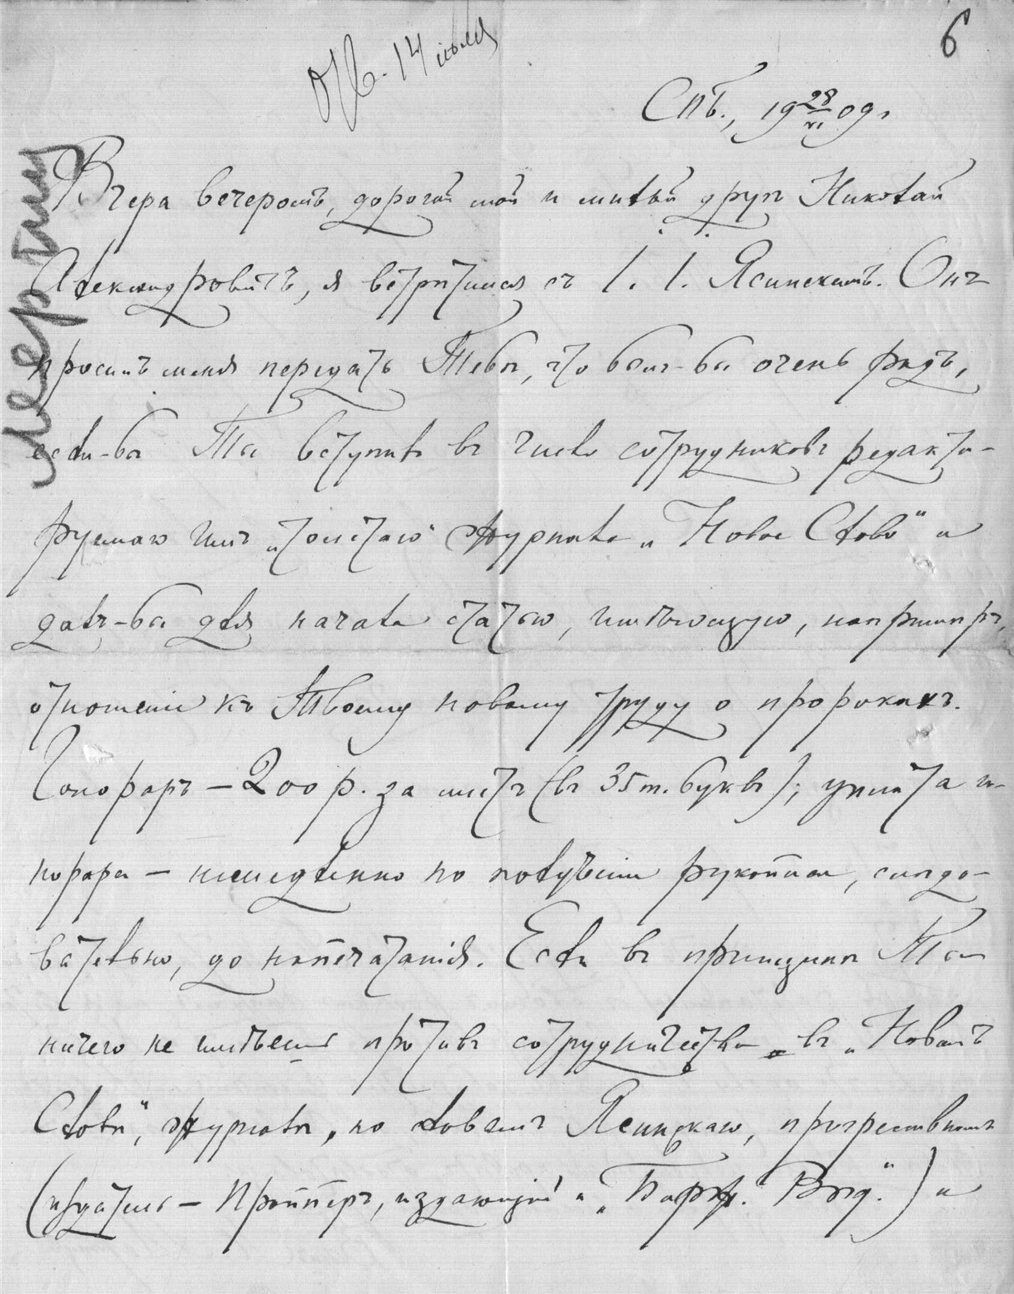 6
Отв. 14 июля
Спб., 19 28/VI 09 г.
Мертлин
Вчера вечеромъ, дорогой мой и милый другъ Николай
Александровичъ, я встрѣтился съ І. І. Ясинскимъ. Онъ
просилъ меня передать Тебѣ, что былъ-бы очень радъ,
если-бы Ты вступилъ въ число сотрудниковъ редакти-
руемаго имъ „толстаго“ журнала „Новое Слово“ и
далъ-бы для начала статью, имѣющую, напримѣръ,
отношеніе къ Твоему новому труду о пророкахъ.
Гонораръ — 200 р. за листъ (въ 35 т. буквъ); уплата го-
норара — немедленно по полученіи рукописи, слѣдо-
вательно, до напечатанія. Если въ принципѣ Ты
ничего не имѣешь противъ сотрудничества въ „Новомъ
Словѣ“, журналѣ, по словамъ Ясинскаго, прогрессивномъ
(издатель — Пропперъ, издающій и „Бирж. Вѣд.“) и